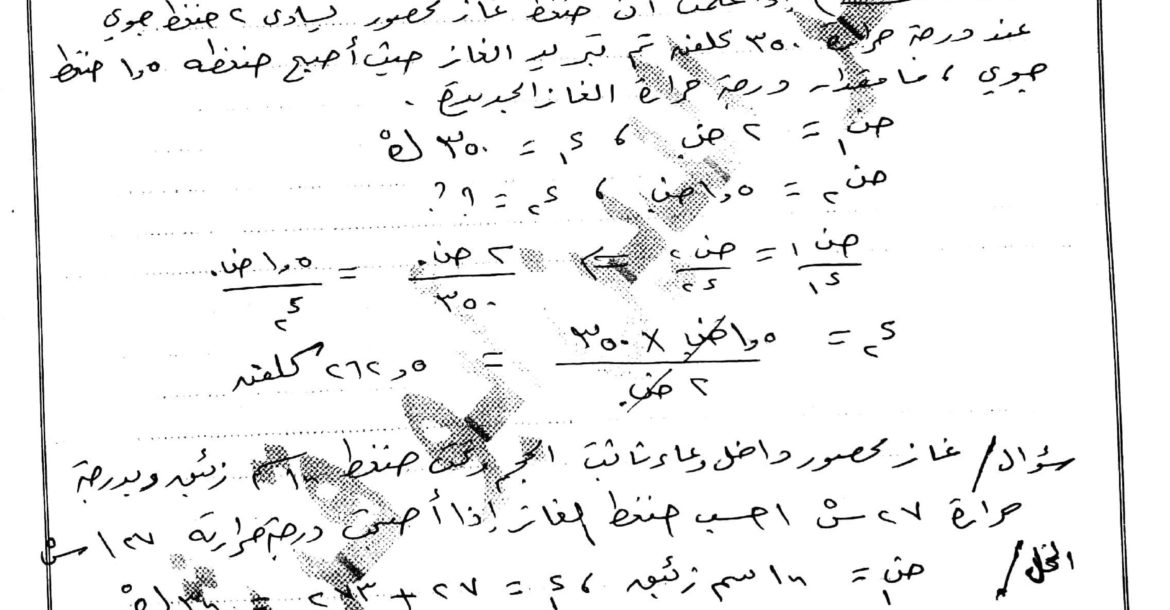 علمت أن ضغط غاز محصور يساوي ٢ ضغط جوي
عند درجة حرارة ٣٥٠ كلفن تم تبريد الغاز حيث أصبح ضغطه ١,٥ ضغط
جوي ، فما مقدار درجة حرارة الغاز الجديدة .
ض١ = ٢ ض. ، د١ = ٣٥٠ ك°
ض٢ = ١,٥ ض. ، د٢ = ؟؟
ض١/د١ = ض٢/د٢ ⇐ ٢ ض./٣٥٠ = ١,٥ ض./د٢
د٢ = ١,٥ ض. × ٣٥٠ / ٢ ض. = ٢٦٢,٥ كلفن
سؤال/ غاز محصور داخل وعاء ثابت الحجم وتحت ضغط سم زئبق وبدرجة
حرارة ٢٧ س° احسب ضغط الغاز إذا أصبحت درجة حرارته ١٢٧ س°
الحل/ ض١ = سم زئبق ، د١ = ٢٧ + ٢٧٣ = ك°